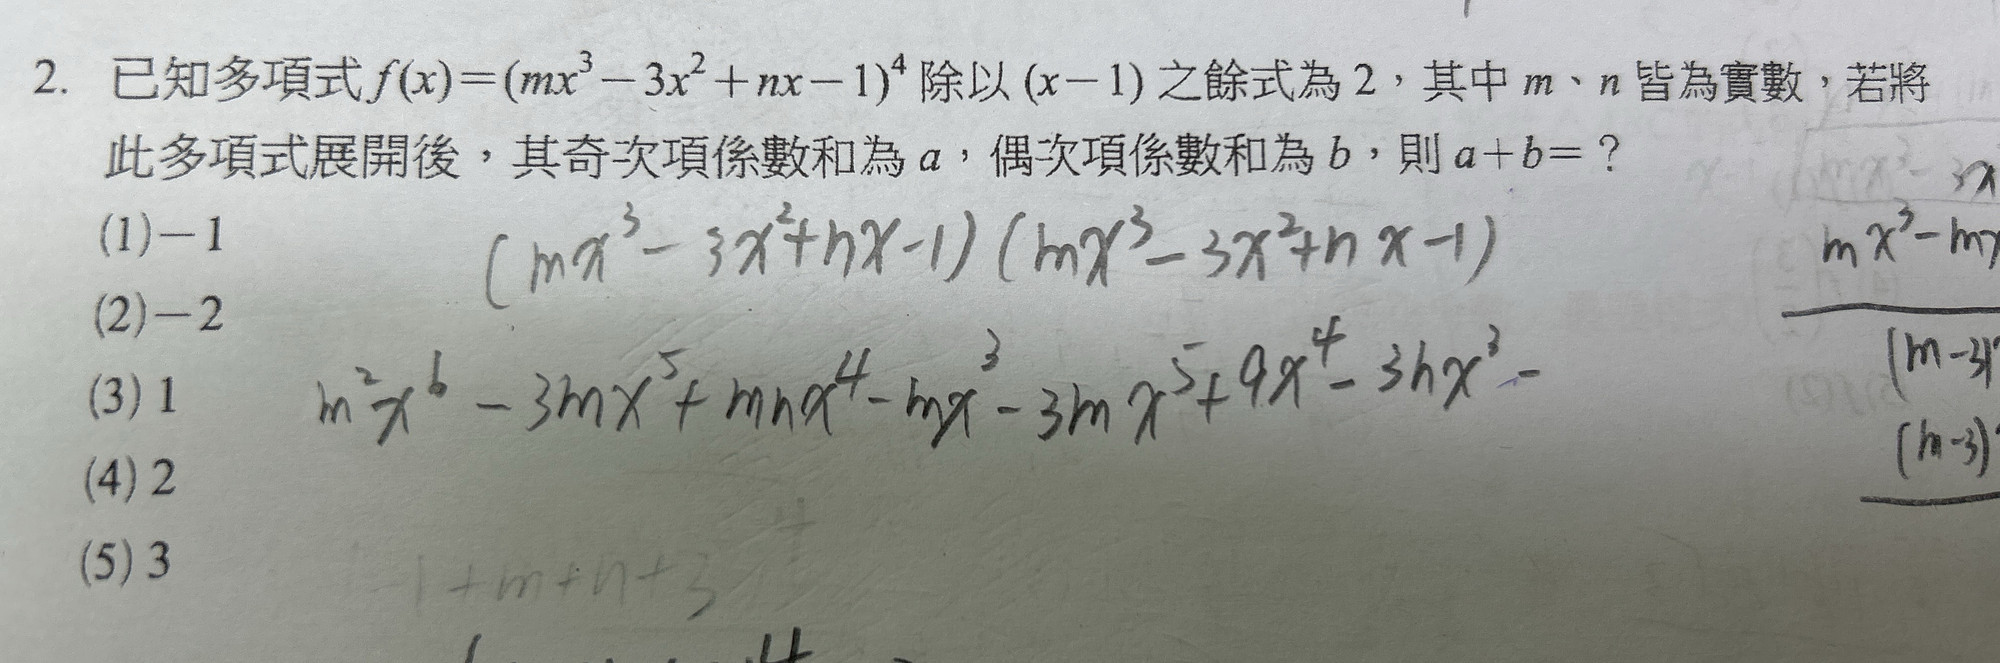 2. 已知多項式 f(x)=(mx³−3x²+nx−1)⁴ 除以 (x−1) 之餘式為 2，其中 m、n 皆為實數，若將
此多項式展開後，其奇次項係數和為 a，偶次項係數和為 b，則 a+b=？
(1)−1
(2)−2
(3) 1
(4) 2
(5) 3
(mx³−3x²+nx−1)(mx³−3x²+nx−1)
m²x⁶−3mx⁵+mnx⁴−mx³−3mx⁵+9x⁴−3nx³−
-1+m+n+3
mx³−3x
mx³−m
(m−3)
(m−3)